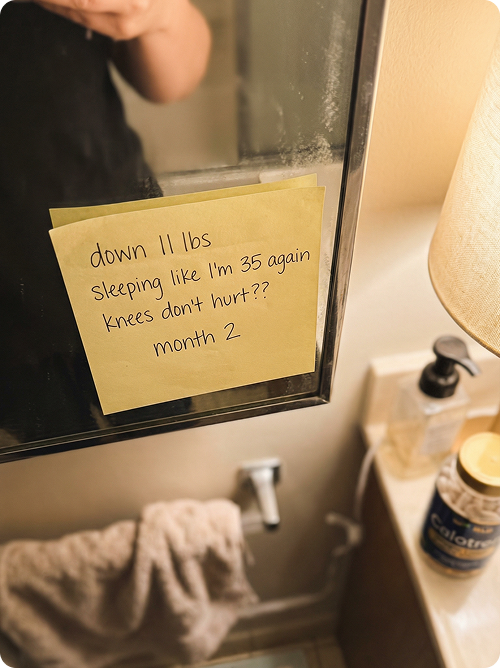 down 11 lbs
sleeping like I'm 35 again
knees don't hurt??
month 2